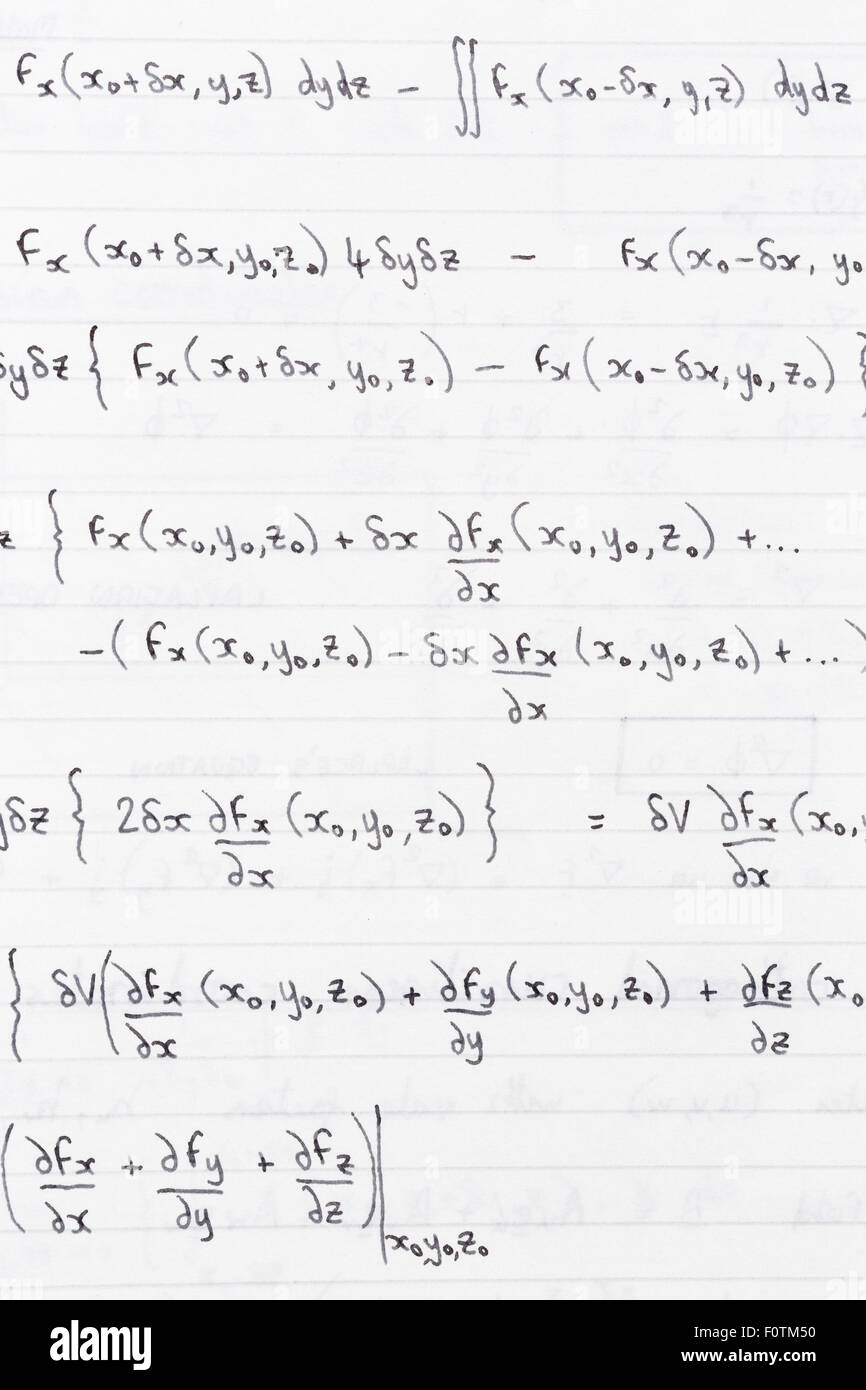 Fx(x₀+δx, y, z) dydz − ∬ Fx(x₀−δx, y, z) dydz
Fx(x₀+δx, y₀, z₀) 4δyδz − Fx(x₀−δx, y₀
δyδz { Fx(x₀+δx, y₀, z₀) − Fx(x₀−δx, y₀, z₀) }
z { Fx(x₀, y₀, z₀) + δx ∂Fx/∂x (x₀, y₀, z₀) + ...
−( Fx(x₀, y₀, z₀) − δx ∂Fx/∂x (x₀, y₀, z₀) + ... )
yδz { 2δx ∂Fx/∂x (x₀, y₀, z₀) } = δV ∂Fx/∂x (x₀, y
{ δV( ∂Fx/∂x (x₀, y₀, z₀) + ∂Fy/∂y (x₀, y₀, z₀) + ∂Fz/∂z (x₀
( ∂Fx/∂x + ∂Fy/∂y + ∂Fz/∂z )|x₀,y₀,z₀
alamy
Image ID: F0TM50
www.alamy.com